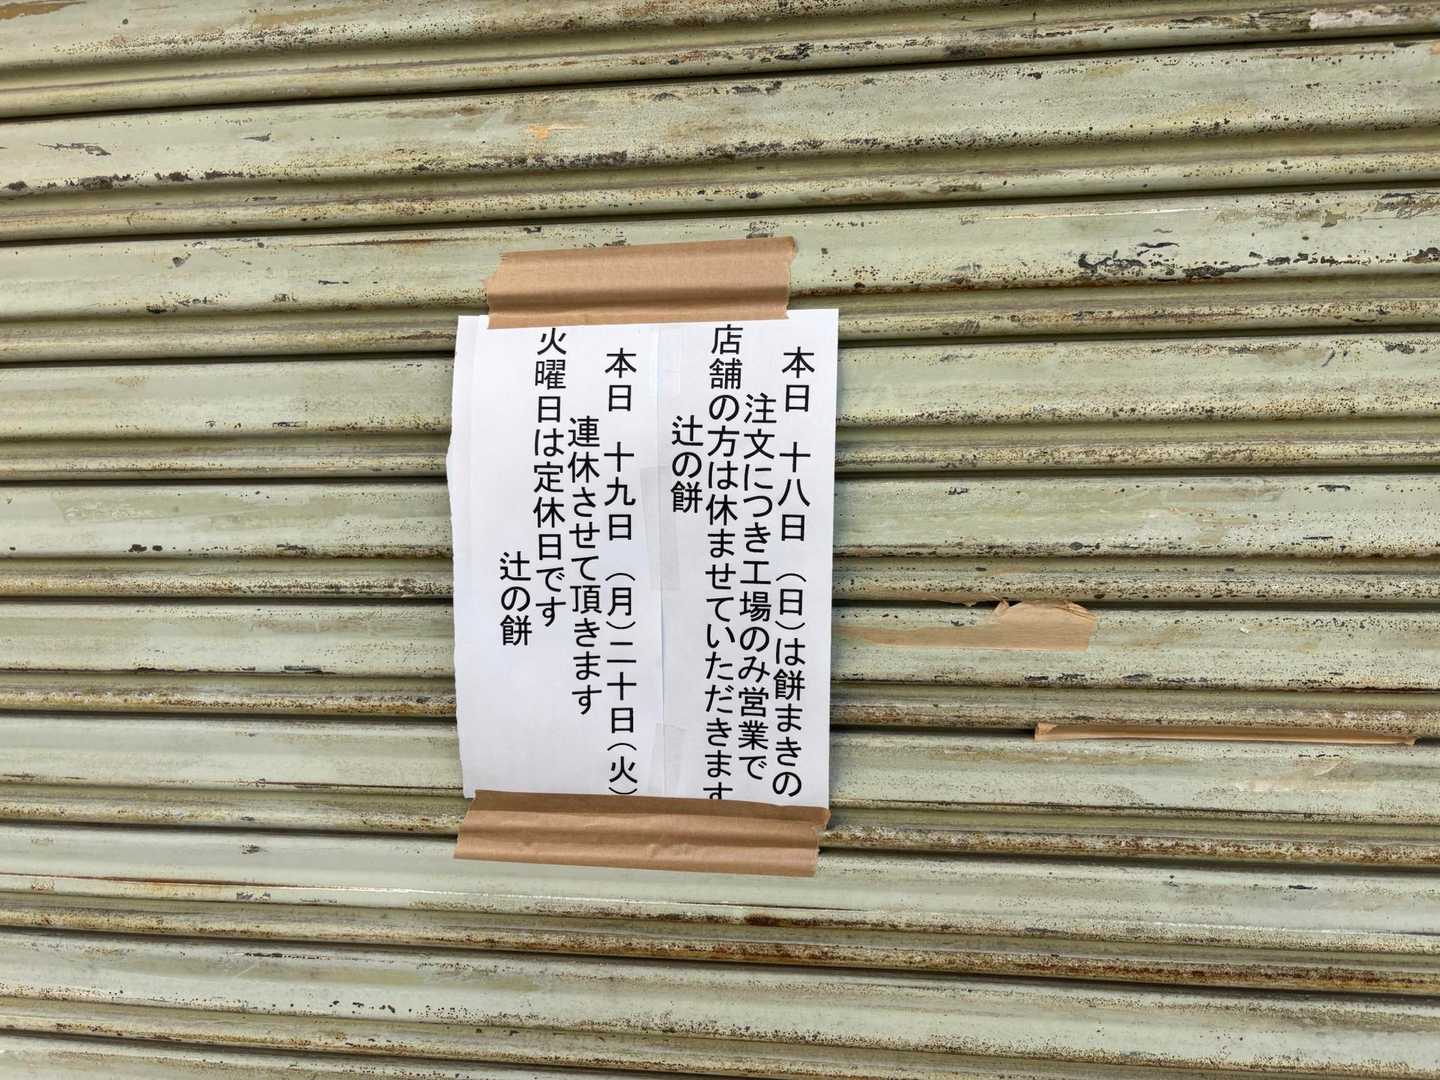 本日 十八日（日）は餅まきの
注文につき工場のみ営業で
店舗の方は休ませていただきます
辻の餅
本日 十九日（月）二十日（火）
連休させて頂きます
火曜日は定休日です
辻の餅